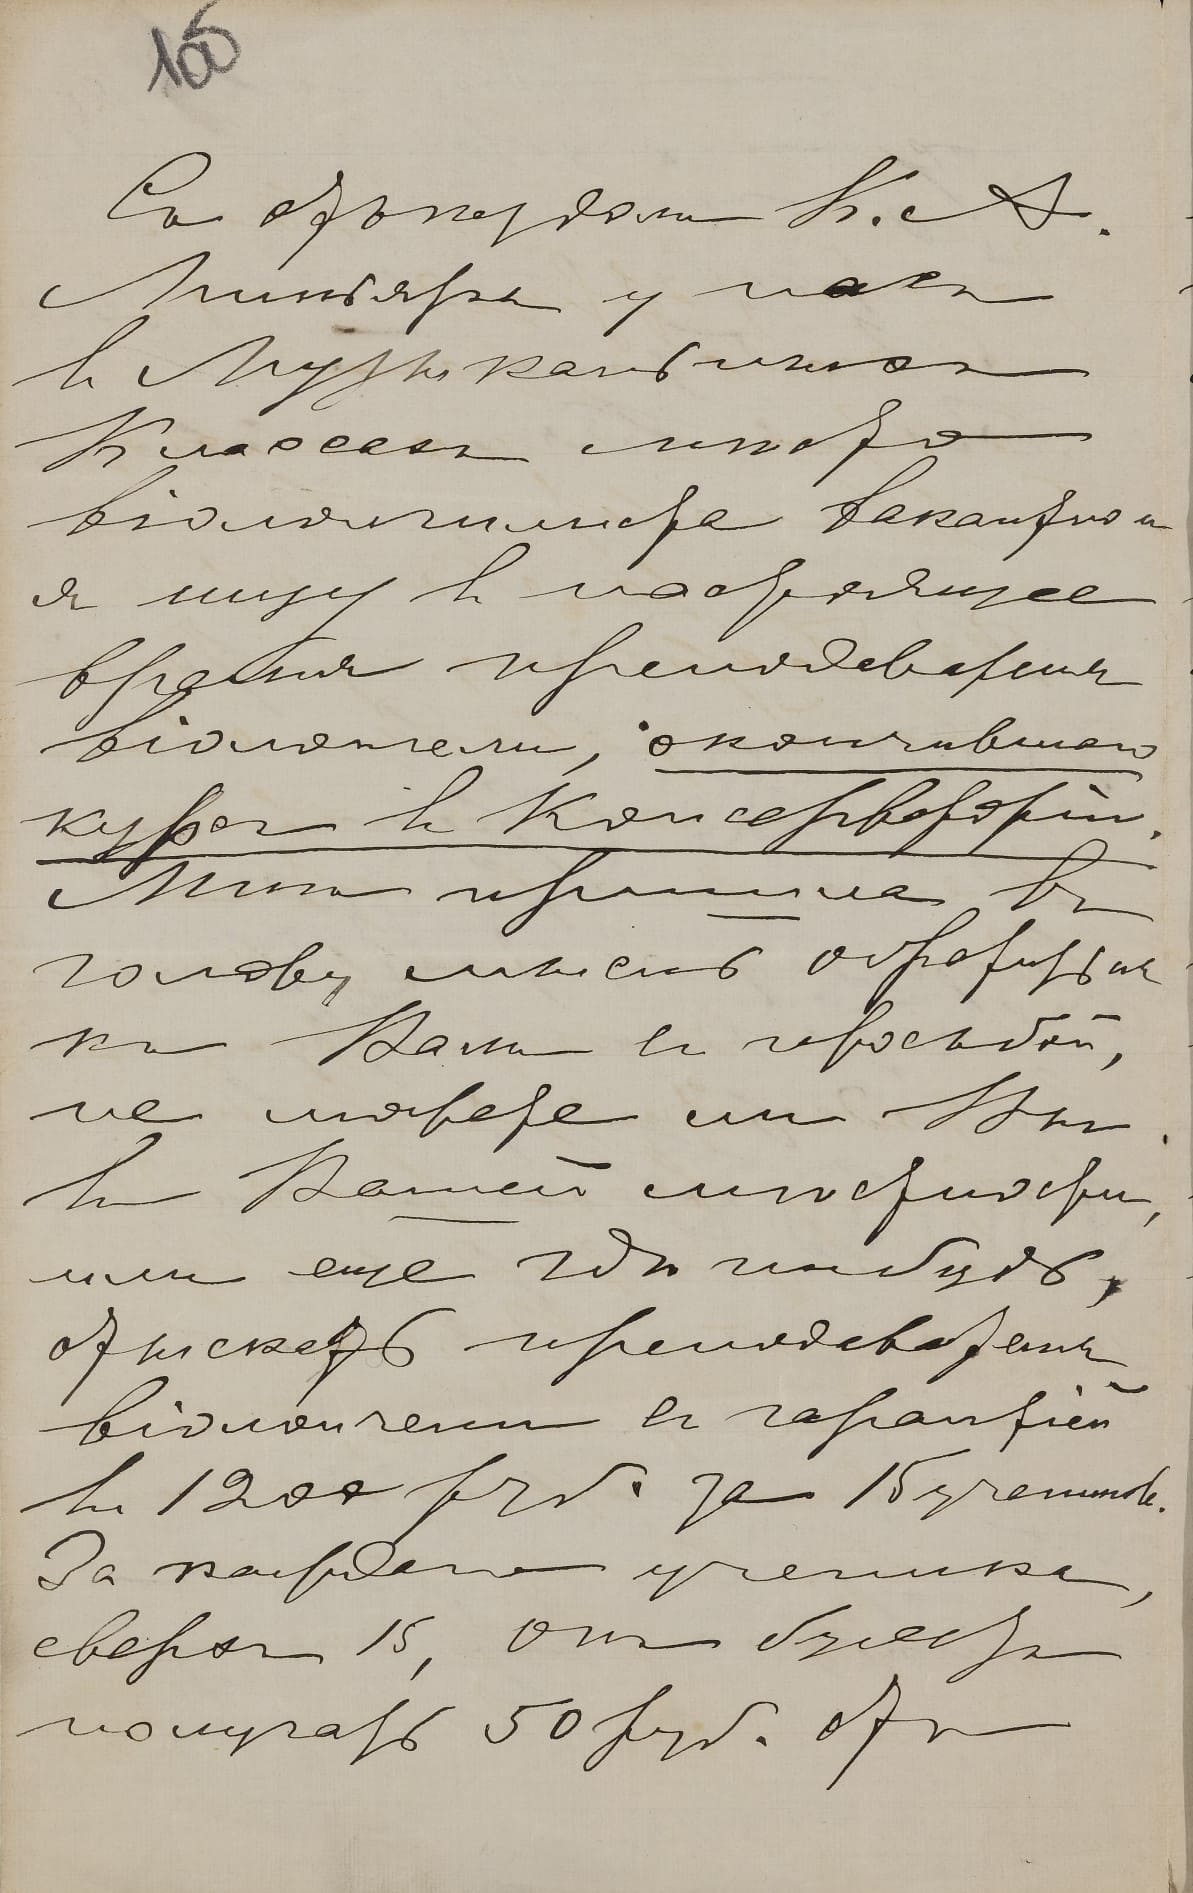 105
Съ отъѣздомъ К. А.
Миньяръ у насъ
въ Музыкальныхъ
Классахъ мѣсто
віолончелиста вакантно и
я ищу въ настоящее
время преподавателя
віолончели, окончившаго
курсъ въ Консерваторіи.
Мнѣ пришла въ
голову мысль обратиться
къ Вамъ съ просьбой,
не можете ли Вы
въ Вашей мѣстности,
или еще гдѣ нибудь,
отыскать преподавателя
віолончели съ гарантіей
въ 1200 руб. за 15 учениковъ.
За каждаго ученика,
сверхъ 15, онъ будетъ
получать 50 руб. отъ